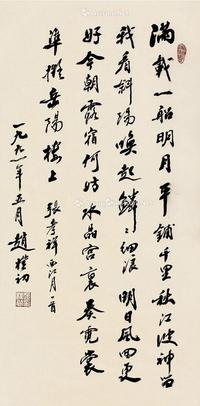 满载一船明月平铺千里秋江波神留
我看斜阳唤起鳞〻细浪 明日风回更
好今朝露宿何妨水晶宫里奏霓裳
準拟岳阳楼上 张孝祥西江月一首
一九九一年五月 赵朴初